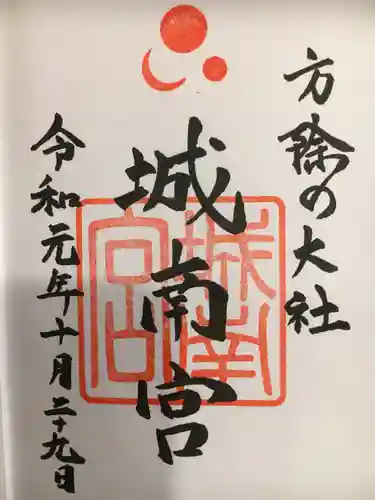 方除の大社
城南宮
城南宮
令和元年十月二十九日